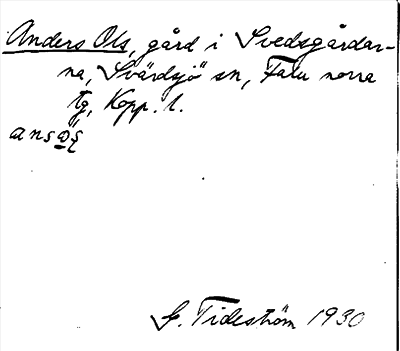 Anders Ols, gård i Svedsgårdar-
na, Svärdsjö sn, Falu norra
tg, Kopp. l.
G. Tideström 1930